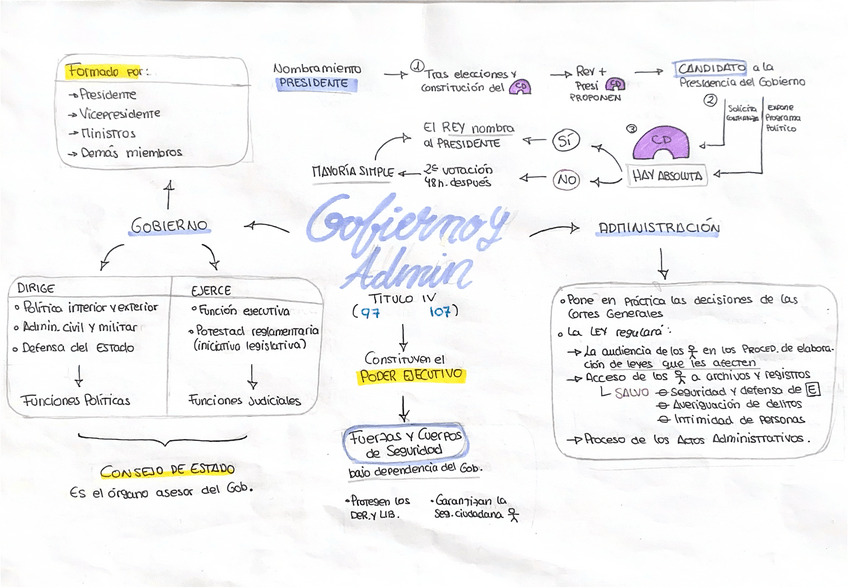 Formado por:
→ Presidente
→ Vicepresidente
→ Ministros
→ Demás miembros
Nombramiento
PRESIDENTE
①
Tras elecciones y
constitución del CD
Rey +
Presi CD
PROPONEN
CANDIDATO a la
Presidencia del Gobierno
②
Solicita
confianza
Expone
Programa
Político
③
CD
HAY ABSOLUTA
SÍ
El REY nombra
al PRESIDENTE
NO
2ª votación
48h. después
MAYORÍA SIMPLE
Gobierno y
Admin
TÍTULO IV
(97 107)
Constituyen el
PODER EJECUTIVO
Fuerzas y Cuerpos
de Seguridad
bajo dependencia del Gob.
• Protegen los
DER. y LIB.
• Garantizan la
Seg. ciudadana
GOBIERNO
DIRIGE
• Política interior y exterior
• Admin. civil y militar
• Defensa del Estado
Funciones Políticas
EJERCE
• Función ejecutiva
• Potestad reglamentaria
(iniciativa legislativa)
Funciones Judiciales
CONSEJO DE ESTADO
Es el órgano asesor del Gob.
ADMINISTRACIÓN
• Pone en práctica las decisiones de las
Cortes Generales
• La LEY regulará:
→ La audiencia de los en los PROCED. de elabora-
ción de leyes que les afecten
→ Acceso de los a archivos y registros
SALVO Seguridad y defensa de E
Averiguación de delitos
Intimidad de Personas
→ Proceso de los Actos Administrativos.